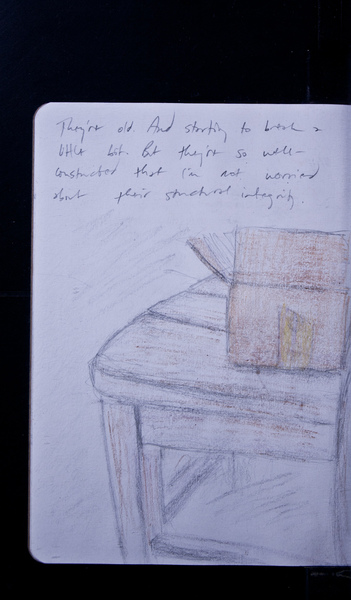 They're old. And starting to break a
little bit. But they're so well-
constructed that I'm not worried
about their structural integrity.